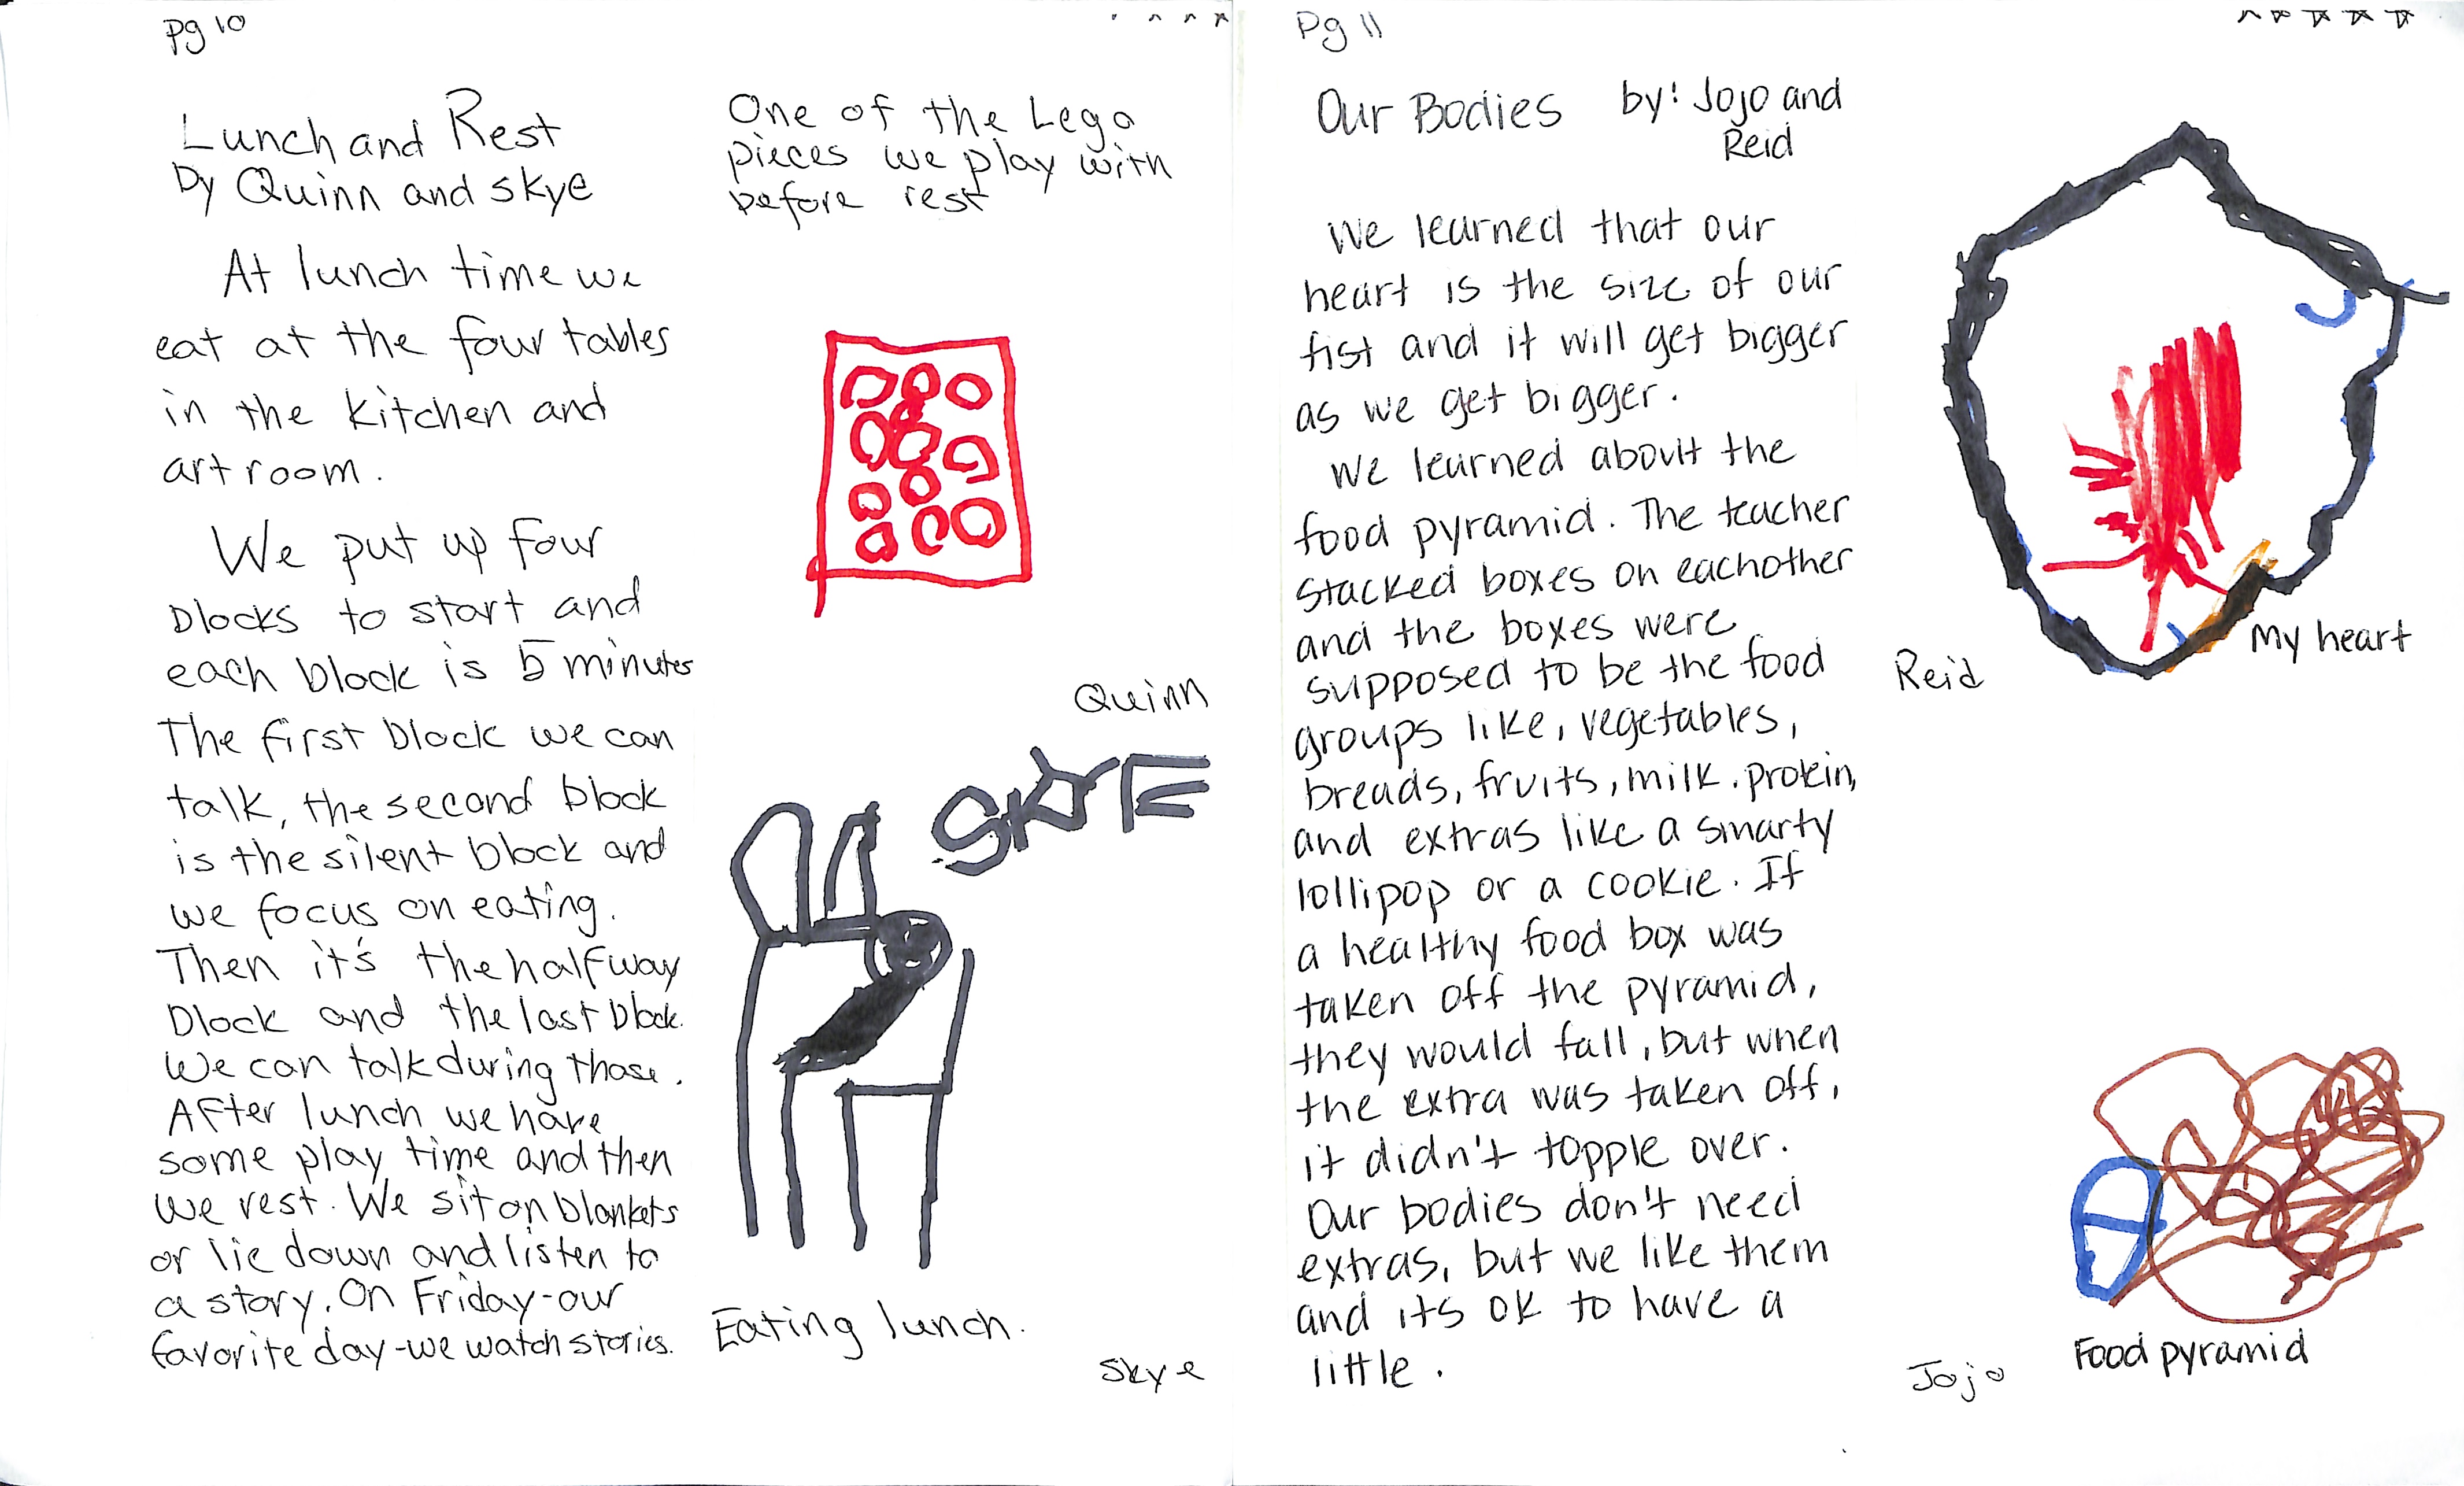 Pg 10
Lunch and Rest
by Quinn and Skye
At lunch time we
eat at the four tables
in the kitchen and
art room.
We put up four
blocks to start and
each block is 5 minutes
The first block we can
talk, the second block
is the silent block and
we focus on eating.
Then it's the halfway
block and the last block.
We can talk during those.
After lunch we have
some play time and then
we rest. We sit on blankets
or lie down and listen to
a story. On Friday-our
favorite day-we watch stories.
One of the Lego
pieces we play with
before rest
Quinn
SKYE
Eating lunch.
Skye
Pg 11
Our Bodies by: Jojo and
Reid
We learned that our
heart is the size of our
fist and it will get bigger
as we get bigger.
We learned about the
food pyramid. The teacher
stacked boxes on eachother
and the boxes were
supposed to be the food
groups like, vegetables,
breads, fruits, milk, protein,
and extras like a smarty
lollipop or a cookie. If
a healthy food box was
taken off the pyramid,
they would fall, but when
the extra was taken off,
it didn't topple over.
Our bodies don't need
extras, but we like them
and its ok to have a
little.
My heart
Reid
Food pyramid
Jojo